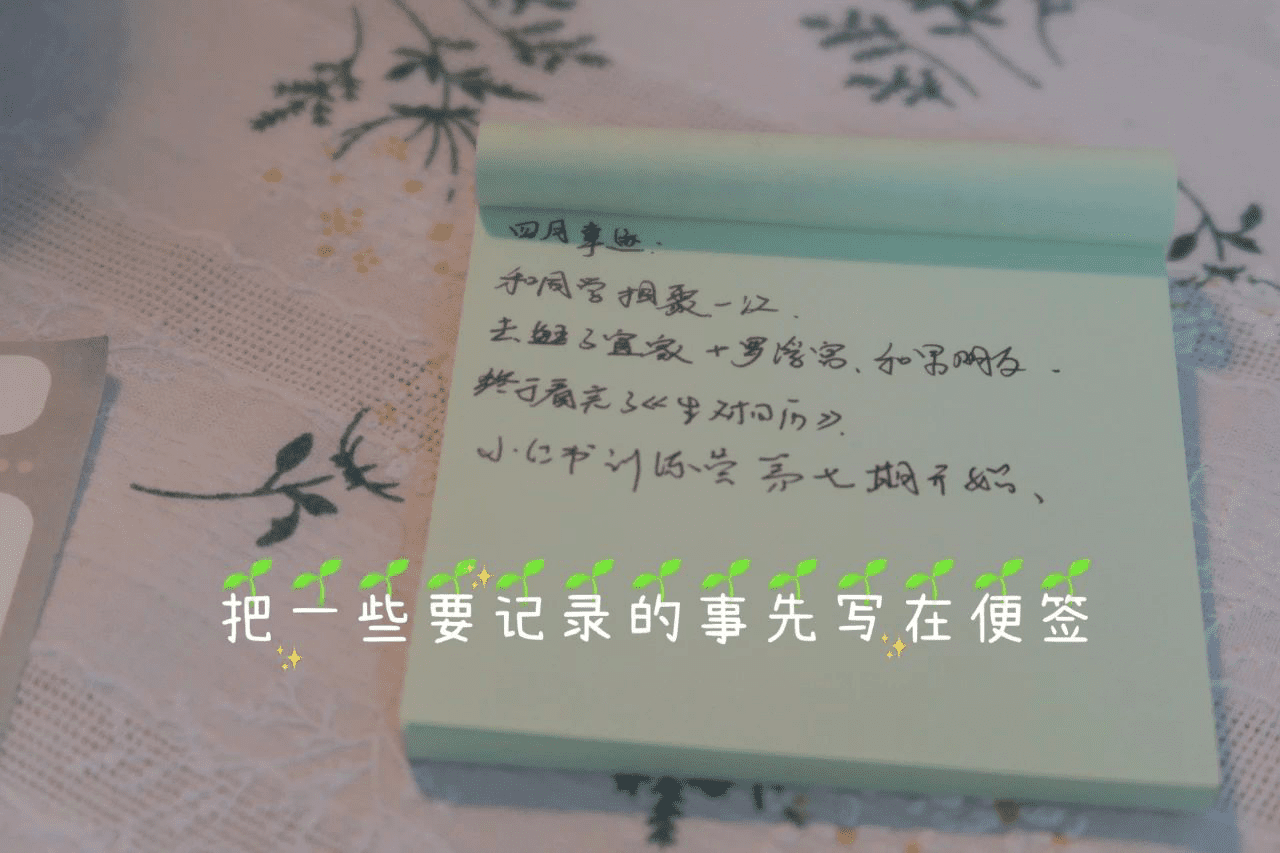 四月事迹.
和同学相聚一次.
去逛了宜家+罗浮宫、和男朋友.
终于看完了《生对日历》.
小红书训练营第七期开始、
把一些要记录的事先写在便签